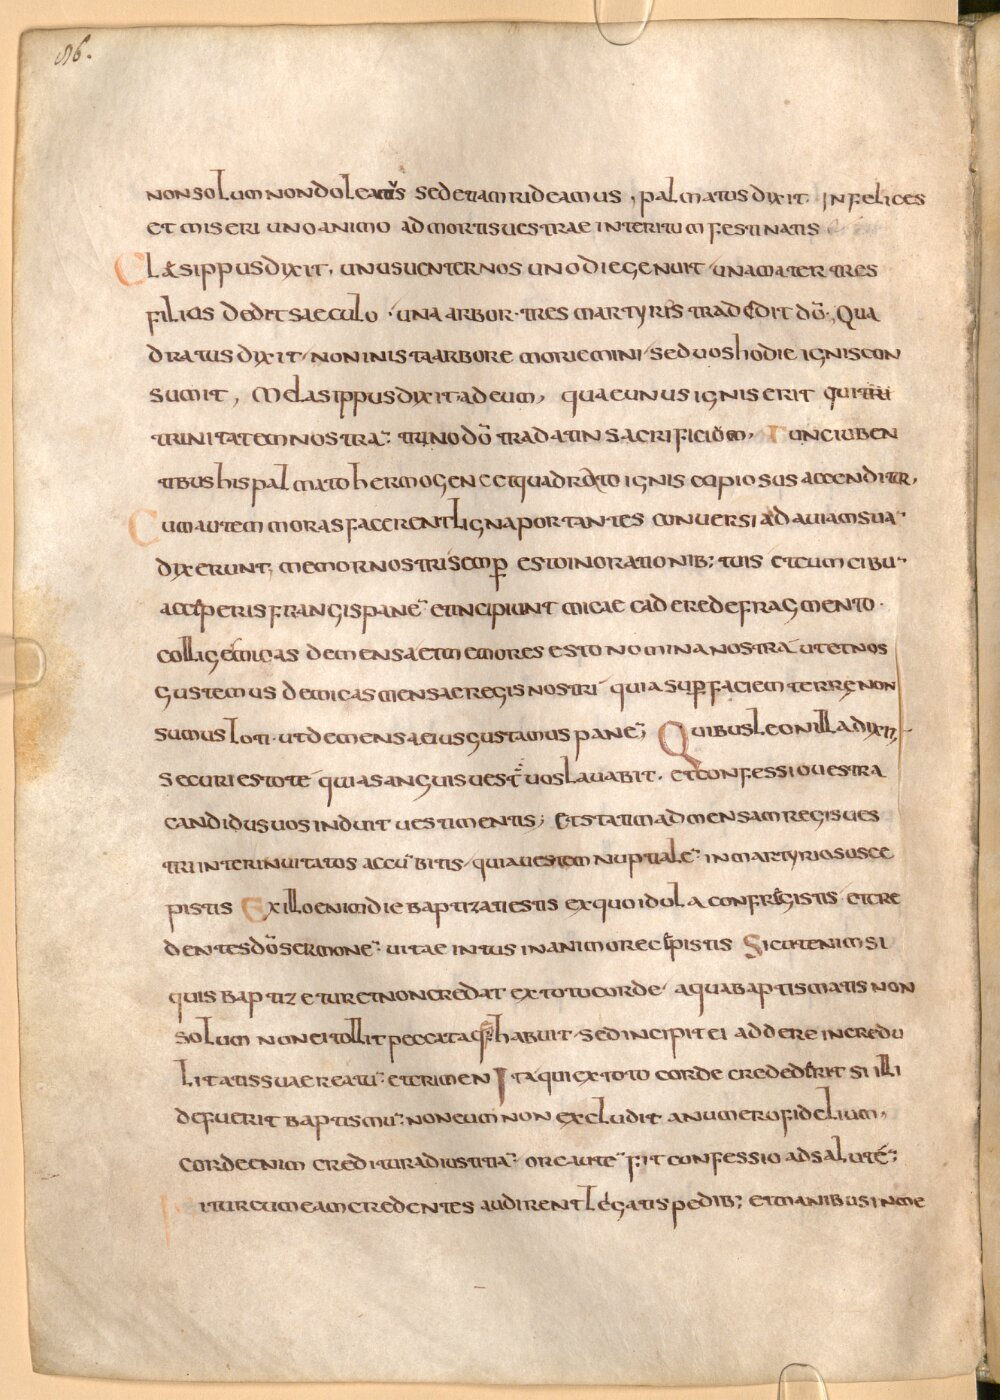 96.
non solum non doleamus sed etiam rideamus, palmatus dixit. infelices
et miseri uno animo ad mortis uestrae interitum festinatis
Elasippus dixit. unus uenter nos uno die genuit una mater tres
filios dedit saeculo · una arbor · tres martyres tradedit dō. Qua
dratus dixit · non in ista arbore moriemini · sed uos hodie ignis con
sumit, Melasippus dixit ad eum, quae unus ignis erit qui
trinitatem nostrā trino dō tradat in sacrificium, Tunc iuben
tibus his palmato hermogene et quadrato ignis copiosus accenditur,
Cum autem moras facerent ligna portantes conuersi ad auiam suā
dixerunt, memor nostri semp esto in orationib; tuis et cum cibū
acceperis frangis panē et incipiunt micae cadere de fragmento.
collige micas de mensa et memores esto nomina nostra ut et nos
gustemus de micas mensae regis nostri quia sup faciem terrę non
sumus loti · ut de mensa eius gustamus panē; Quibus leonilla dixit,
securi estote quia sanguis uestr uos lauabit. et confessio uestra
candidus uos induit uestimentis; Et statim ad mensam regis ues
tri inter inuitatos accūbitis · quia uestem nuptialē in martyrio susce
pistis Ex illo enim die baptizati estis ex quo idola confregistis et cre
dentes dō sermonē uitae intus in animo recepistis Sicut enim si
quis baptizetur et non credat ex toto corde · aqua baptismatis non
solum non ei tollit peccata q habuit · sed incipit ei addere incredu
litatis suae reatū et crimen Ita qui ex toto corde crediderit si illi
defuerit baptismū non eum non excludit a numero fidelium,
corde enim creditur ad iustitiā ore autē fit confessio ad salutē;
itur cum eam credentes audirent legatis pedib; et manibus in me